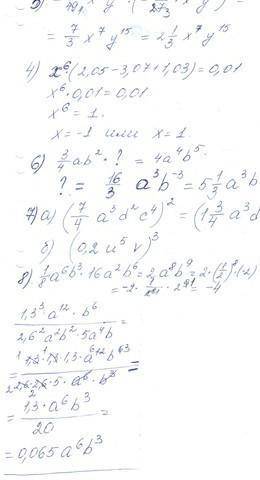 = 7/3 x⁷ y¹⁵ = 2 1/3 x⁷ y¹⁵
4) x⁶ · (2,05 - 3,07 + 1,03) = 0,01
x⁶ · 0,01 = 0,01
x⁶ = 1.
x = -1 или x = 1.
6) 3/4 ab² · ? = 4a⁴b⁵.
? = 16/3 a³b⁻³ = 5 1/3 a³b
7) а) (7/4 a³d²c⁴)² = (1 3/4 a³d
б) (0,2 u⁵ v)³
8) 1/8 a⁶b³ · 16a²b⁶ = 2 a⁸b⁹ = 2 · (1/2)⁸ · (-2)
1,3³ · a¹² · b⁶
2,6² a²b² · 5a⁴b =
= 1,3 · a⁶ b³
20 =
= 0,065 a⁶b³